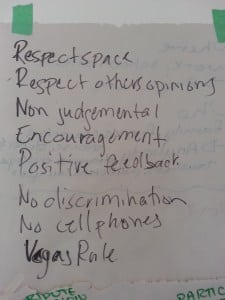 Respect space
Respect others opinions
Non judgemental
Encouragement
Positive feedback
No discrimination
No cell phones
Vegas Rule